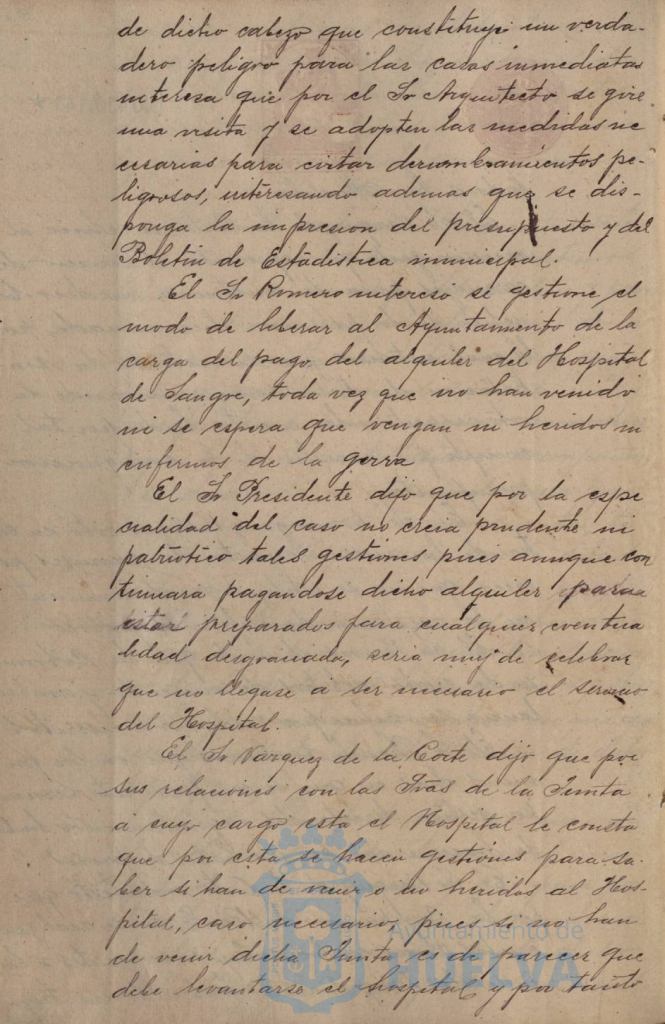 de dicho cabezo que constituye un verda-
dero peligro para las casas inmediatas
interesa que por el Sr Arquitecto se gire
una visita y se adopten las medidas ne
cesarias para evitar derrumbamientos pe-
ligrosos, interesando ademas que se dis-
ponga la impresion del presupuesto y del
Boletin de Estadistica municipal.
El Sr Romero interesó se gestione el
modo de liberar al Ayuntamiento de la
carga del pago del alquiler del Hospital
de Sangre, toda vez que no han venido
ni se espera que vengan ni heridos ni
enfermos de la gerra
El Sr Presidente dijo que por la espe
cialidad del caso no creia prudente ni
patriotico tales gestiones pues aunque con
tinuara pagandose dicho alquiler para
estar preparados para cualquier eventua
lidad desgraciada, seria muy de celebrar
que no llegase á ser necesario el servicio
del Hospital.
El Sr Vazquez de la Corte dijo que por
sus relaciones con las Sras de la Junta
á cuyo cargo esta el Hospital le consta
que por esta se hacen gestiones para sa-
ber si han de venir o no heridos al Hos-
pital, caso necesario, pues si no han
de venir dicha Junta es de parecer que
debe levantarse el hospital y por tanto
Ayuntamiento de
HUELVA